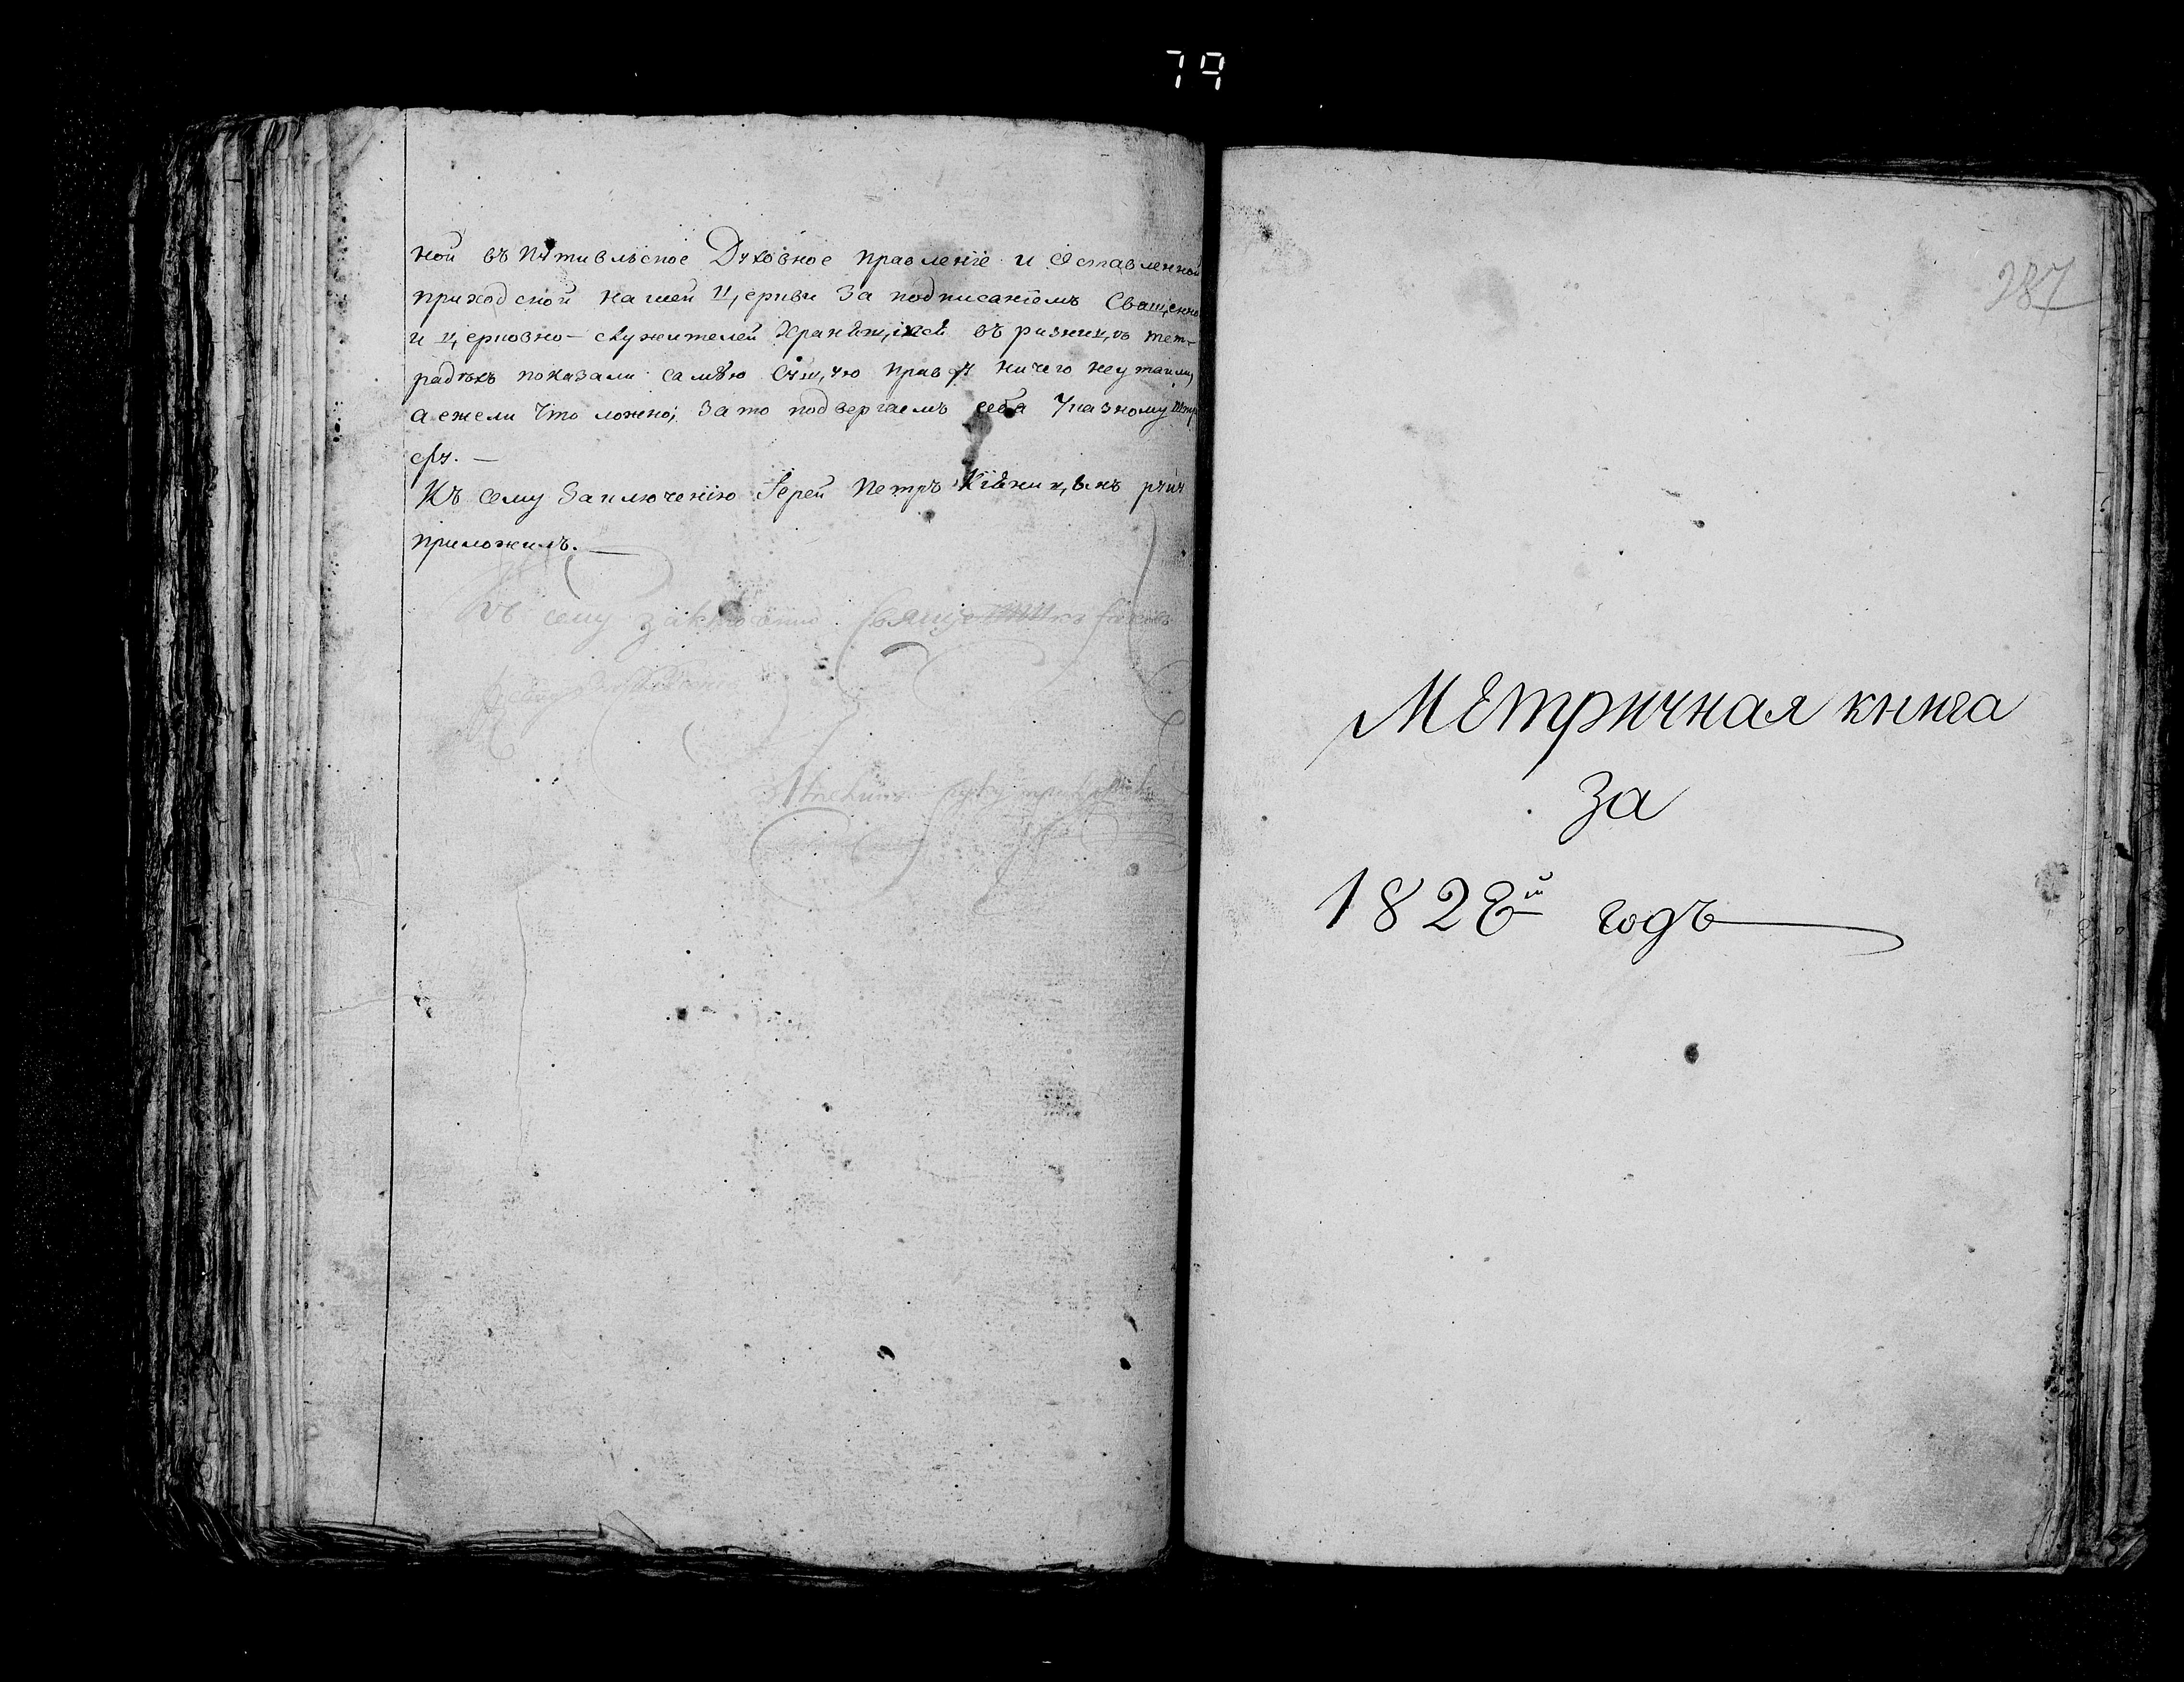 79
ной въ Путивльское Духовное правленїе и Оставленной
приходской нашей Церкви За подписанїемъ Священно
и церковно-служителей Хранящихся въ ризницѣ тет-
радѣхъ показали самую Сущую правду ничего неутаили
а ежели Что ложно; зато подвергаемъ себя Указному штр
афу. —
Къ сему Заключенїю Іерей Петръ руку
приложилъ. —
къ сему заключению Священникъ
руку приложилъ
287
Метричная книга
за
1828й годъ